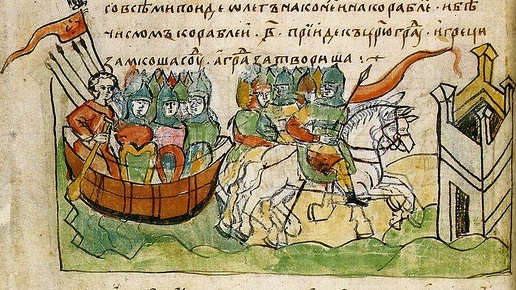 совсѣми поиде ѡлегъ наконеи инакорабле . ибѣ
числомъ кораблеи . в҃ . прїидекъ цр҃югра . игреци
замкоша соу . агра затвориша :·